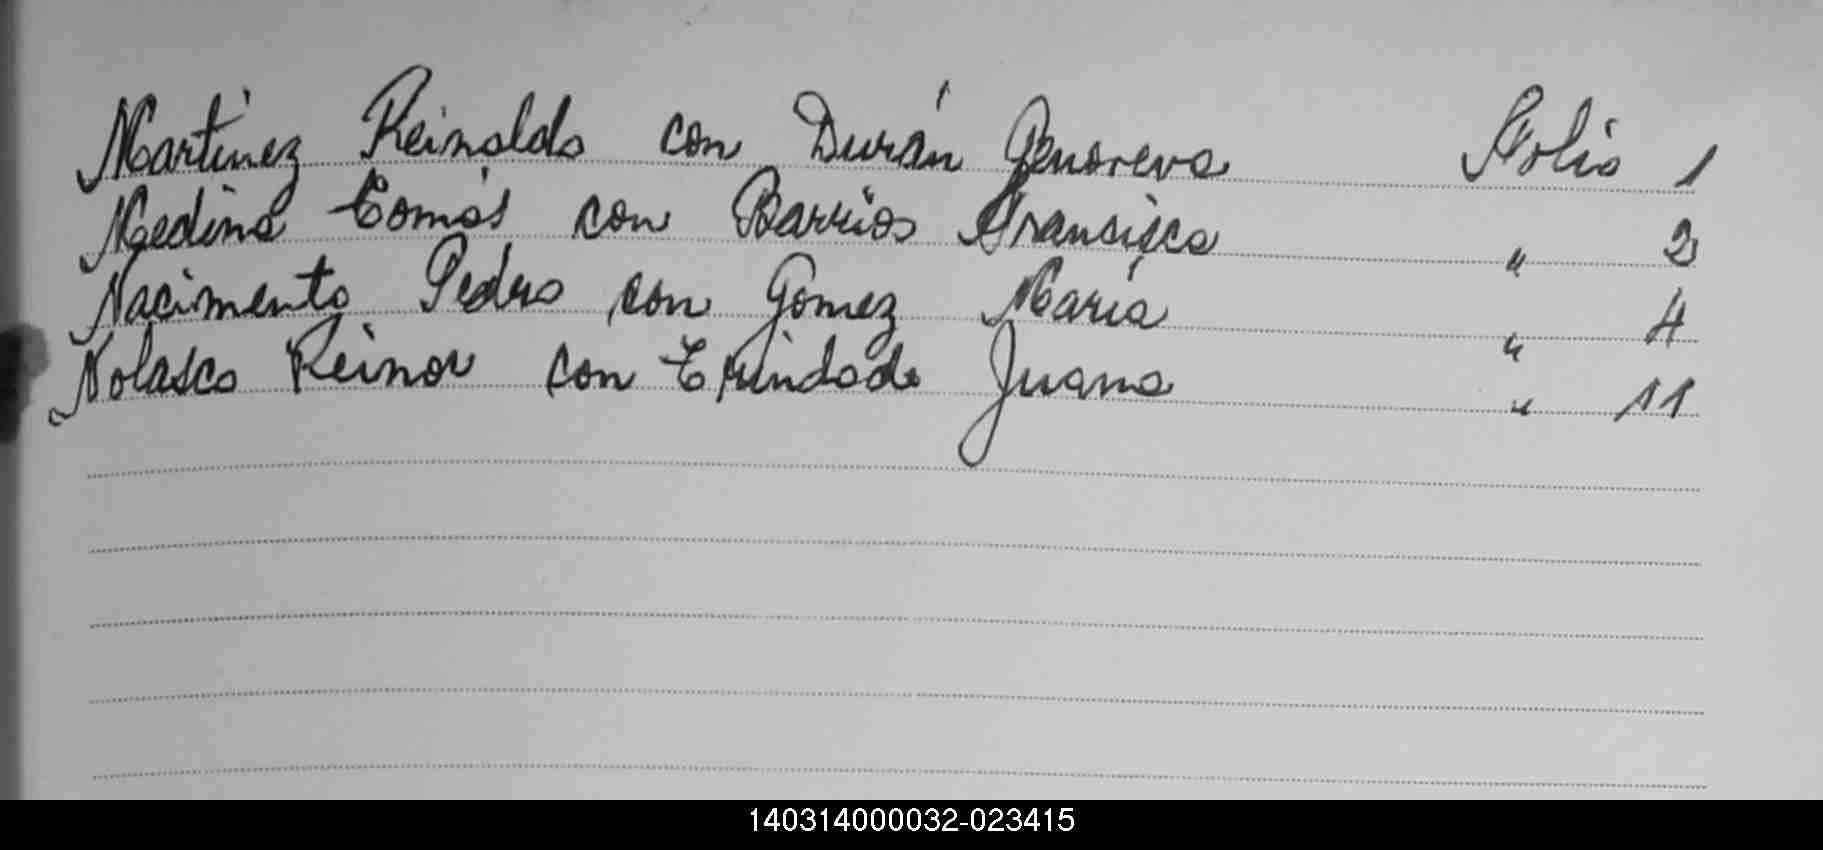 Martinez Reinaldo con Durán Genoveva Folio 1
Medina Tomás con Barrios Fransisca " 2
Nacimento Pedro con Gomez María " 4
Nolasco Reinor con Trindade Juana " 11
140314000032-023415